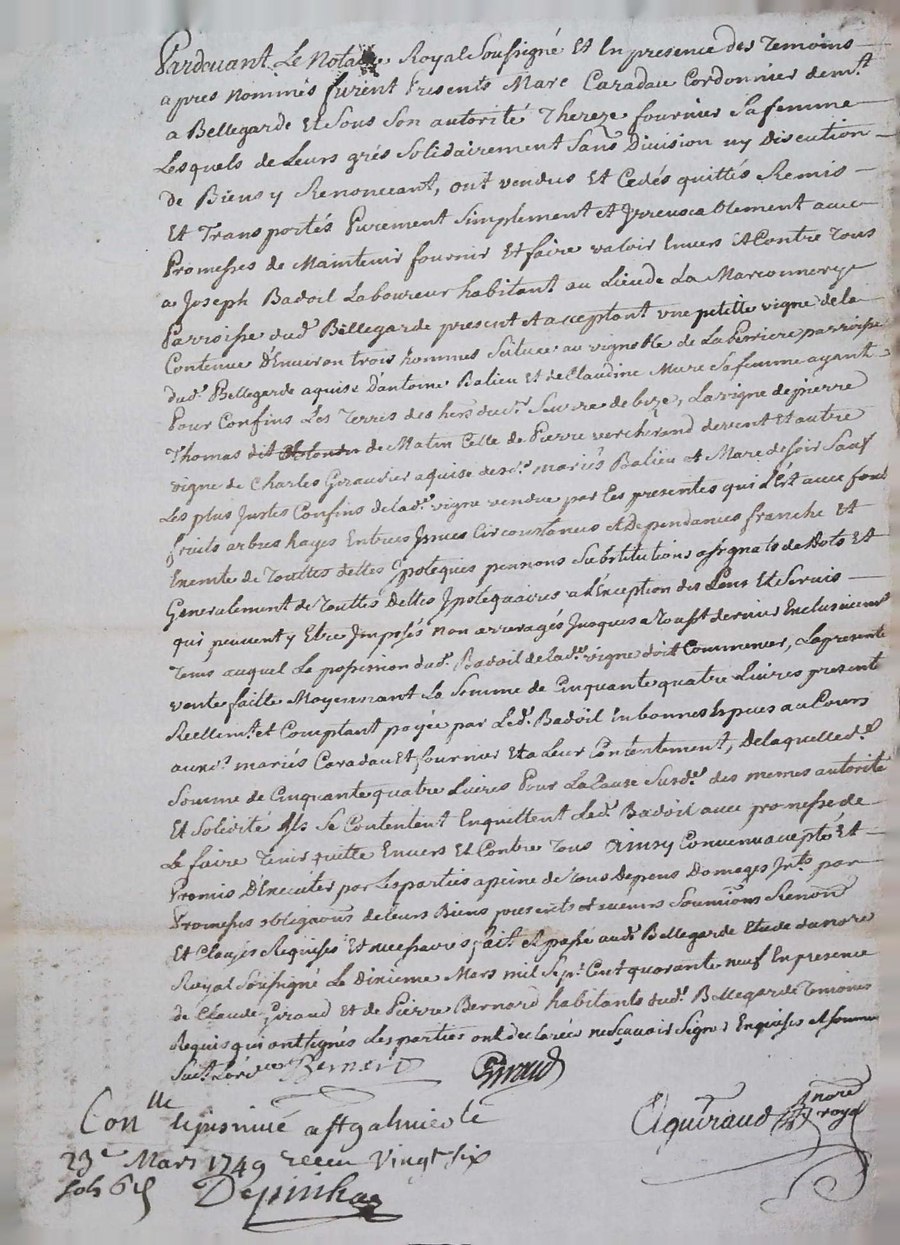 Pardevant Le Notaire Royal Soussigné Et En presence des Temoins
apres nommés furent Presents Marc Caradau Cordonnier dem.t
a Bellegarde Et Sous Son autorité Thereze fournier Sa femme
Lesquels de Leurs grés Solidairement Sans Division ny Discution
de Biens y Renonceant, ont vendus Et Cedés quittés Remis
Et Transportés Purement Simplement et Irreuocablement auec
Promesses de Maintenir fournir Et faire valoir Enuers Et Contre Tous
a Joseph Badoil Laboureur habitant au Lieu de La Marconnerye
Parroisse dud. Bellegarde present et acceptant vne petitte vigne de la
Contenue D'Enuiron trois hommes Scituée au vignoble de La perriere parroisse
dud. Bellegarde aquise d'antoine Balieu Et de Claudine Mure Sa femme ayant
Pour Confins Les Terres des hers du Sr. de bize, La vigne de pierre
Thomas dit de Matin Celle de Pierre vercherand de vent Et autre
vigne de Charles Giraudier aquise desd. mariés Balieu et Mure de Soir Sauf
Les plus Justes Confins de lad. vigne vendue par Les presentes qui L'Est auec fond
fruits arbres hayes Entrées Issues Circonstances et Dependances franche Et
Exemte de Touttes dettes Ipoteques pensions Substitutions assignats de Dots Et
Generalement de Touttes Dettes Ipotequaires a L'Exception des Cens Et Seruis
qui peuuent y Etre Imposés non arreragés Jusques a Toussts dernier Exclusiuemt
Tems auquel La possession dud. Badoil de lad. vigne doit Commencer, La presente
vente faitte Moyennant La Somme de Cinquante quatre Liures presente
Reellemt. et Comptant payée par Led. Badoil En bonnes Especes au Cours
auxd. mariés Caradau Et fournier Et a Leur Contentement, De laquelle d.
Somme de Cinquante quatre Liures Pour La Cause Susd. des memes autorité
Et Solidité Ils Se Contentent En quittent Led. Badoil auec promesse de
Le faire Tenir quitte Enuers Et Contre Tous Ainsy Conuenu accepté Et
Promis D'Executer par Les parties a peine de Tous Depens Domages Jnts. par
Promesses obligaons de leurs Biens presents et auenirs Soumions Renonns
Et Clauses Requises Et necessaires, fait Et passé aud. Bellegarde Etude du nore
Royal Soussigné Le Dixieme Mars mil Sept Cent quarante neuf En presence
de Claude Giraud Et de Pierre Bernard habitants dud. Bellegarde Temoins
Requis qui ont signés Les parties ont declarée ne Sçauoir Signer Enquises et Sommées
Suiut. L'ordce Bernard Giraud
Conlle Et Insinué a St galmier le
23e Mars 1749 receu vingt six
sols 6 d
Depinhac
Aguiraud nore royal